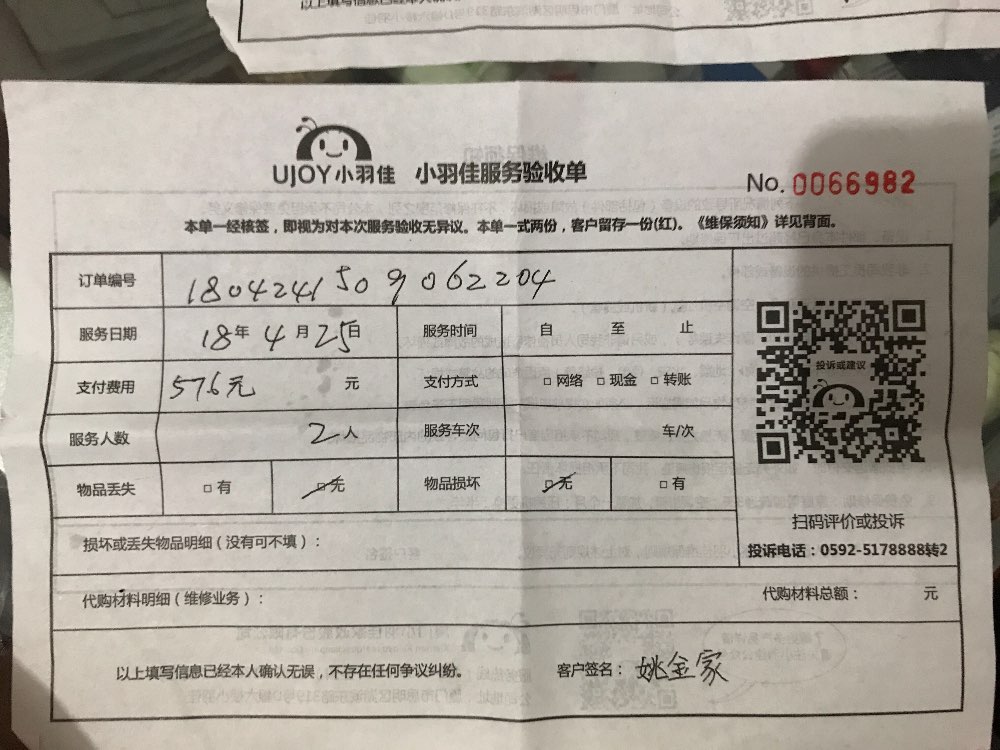 以上填写信息已经本人
UJOY小羽佳 小羽佳服务验收单
No. 0066982
本单一经核签，即视为对本次服务验收无异议。本单一式两份，客户留存一份(红)。《维保须知》详见背面。
订单编号 1804241509062204
服务日期 18年 4月 25日 服务时间 自 至 止
支付费用 576元 元 支付方式 □网络 □现金 □转账
投诉或建议
服务人数 2人 服务车次 车/次
物品丢失 □有 □无 物品损坏 □无 □有
扫码评价或投诉
投诉电话：0592-5178888转2
损坏或丢失物品明细（没有可不填）：
代购材料明细（维修业务）： 代购材料总额： 元
以上填写信息已经本人确认无误，不存在任何争议纠纷。 客户签名：姚金家